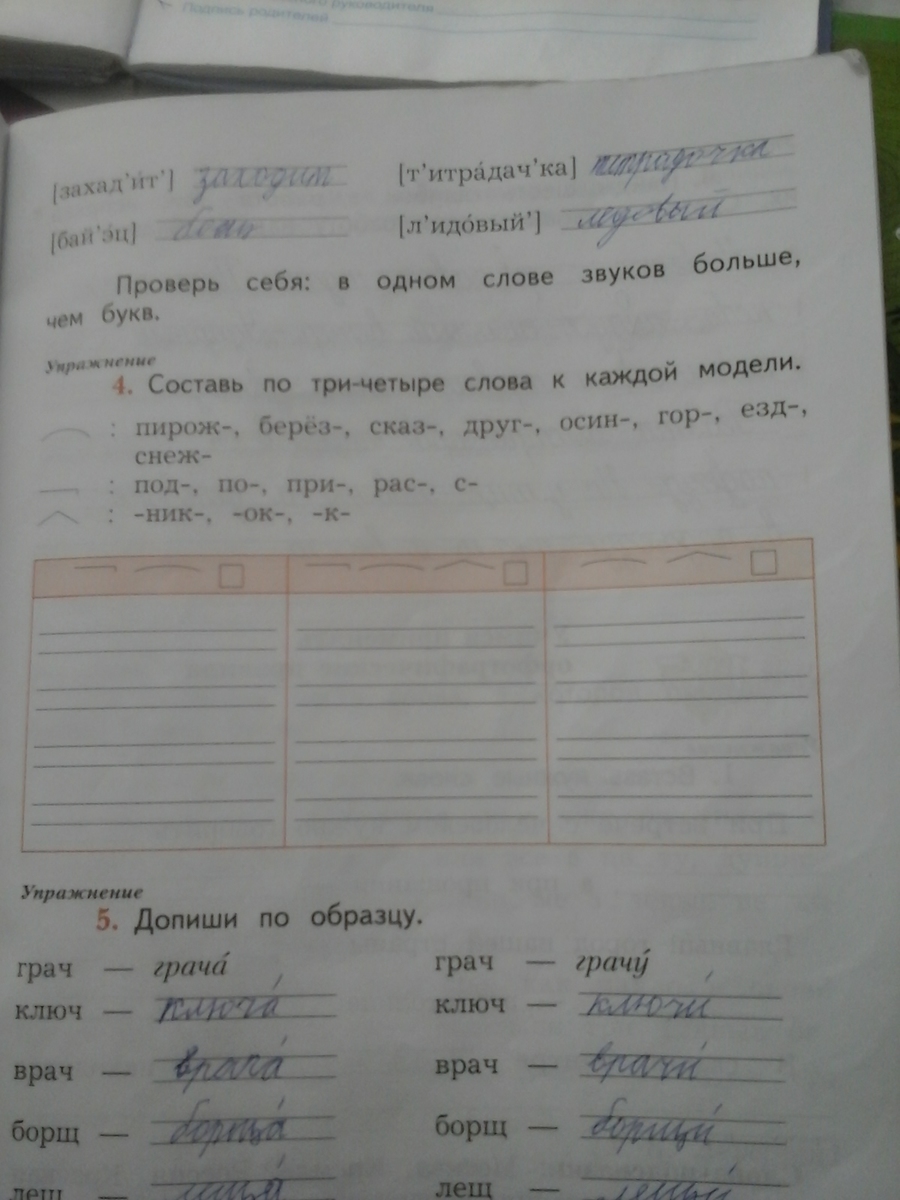 Подпись родителей
[захад’и́т’] заходит [т’итра́дач’ка] тетрадочка
[бай’э́ц] [л’идо́вый’] ледовый
Проверь себя: в одном слове звуков больше,
чем букв.
Упражнение
4. Составь по три-четыре слова к каждой модели.
: пирож-, берёз-, сказ-, друг-, осин-, гор-, езд-,
снеж-
: под-, по-, при-, рас-, с-
: -ник-, -ок-, -к-
Упражнение
5. Допиши по образцу.
грач — грача́ грач — грачу́
ключ — ключа́ ключ — ключи́
врач — врача́ врач — врачи́
борщ — борща́ борщ — борщи́
лещ леща́ лещ — лещи́